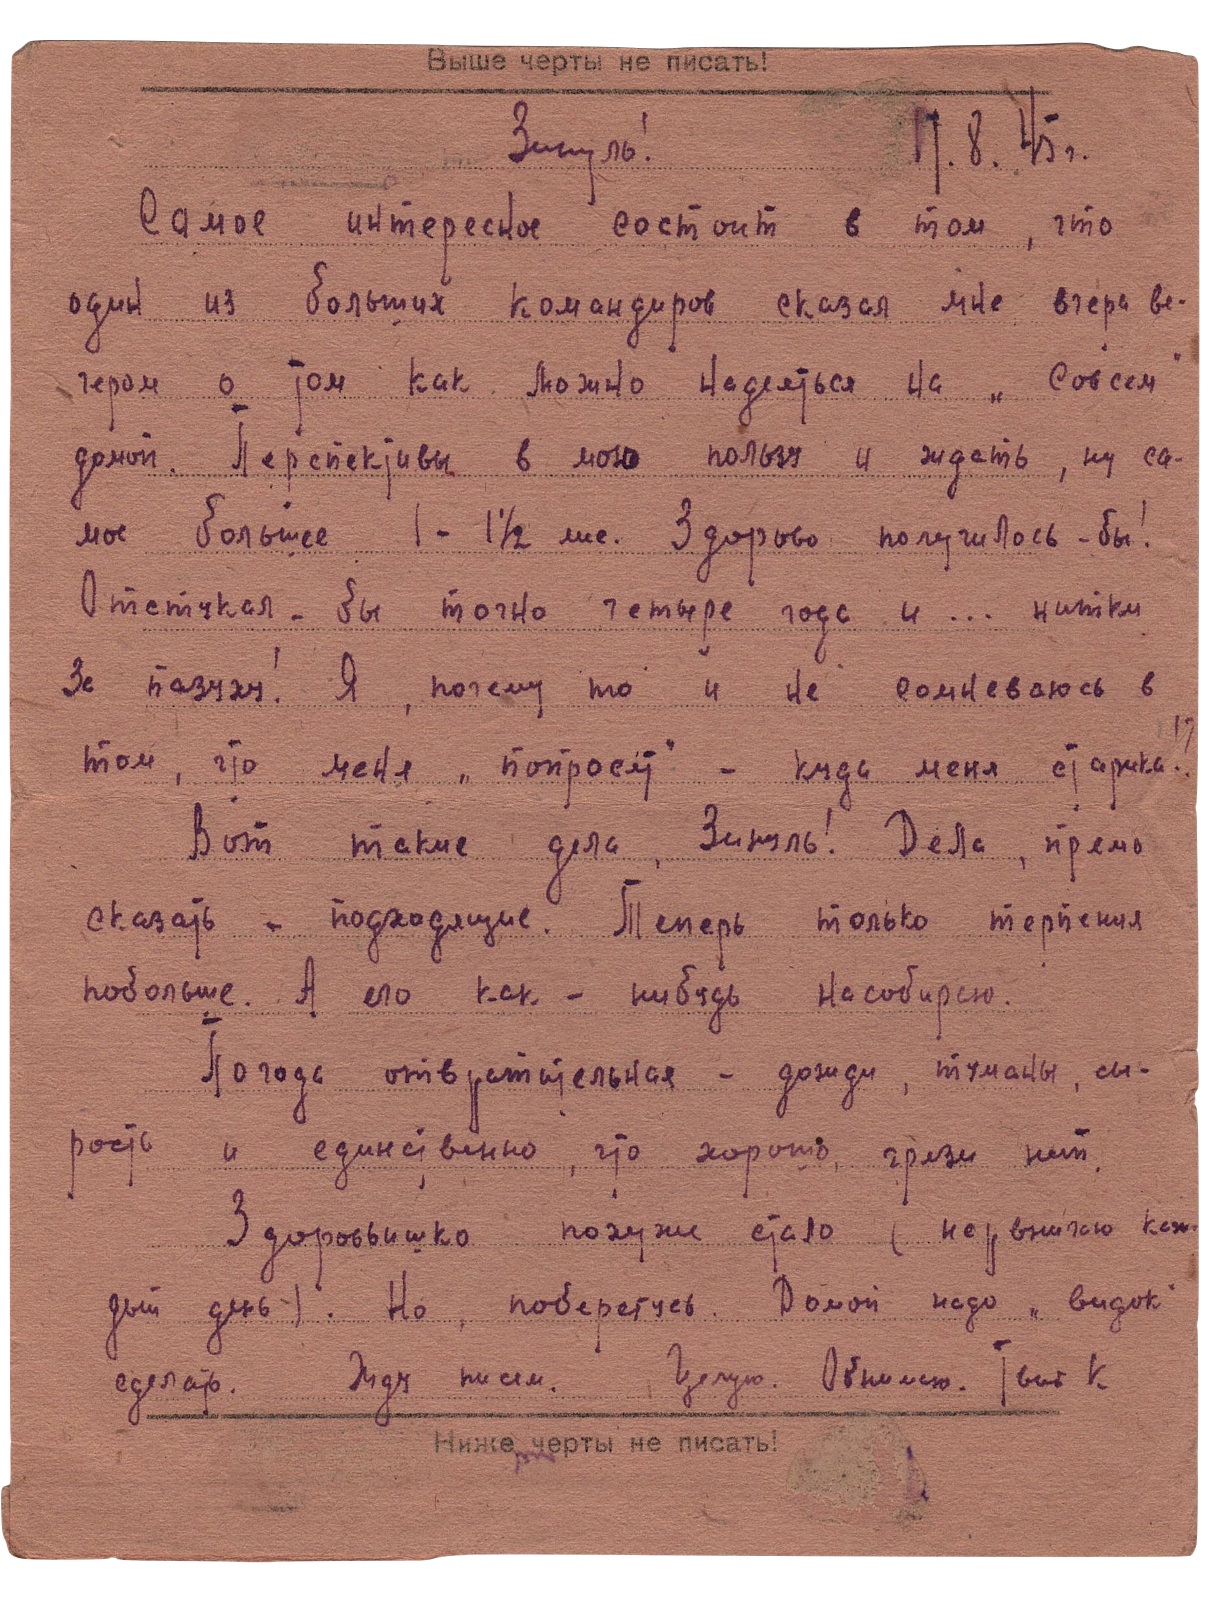 Выше черты не писать!
Зинуль! 17.8.45 г.
Самое интересное состоит в том, что
один из больших командиров сказал мне вчера ве-
чером о том как можно надеяться на „Совсем"
домой. Перспективы в мою пользу и ждать, ну са-
мое большее 1 - 1½ мес. Здорово получилось-бы!
Отстукал-бы точно четыре года и ... нитки
за пазуху! Я, почему то и не сомневаюсь в
том, что меня „попросят" - куда меня старика!?
Вот такие дела, Зинуль! Дела, прямо
сказать - подходящие. Теперь только терпения
побольше. А его как-нибудь насобираю.
Погода отвратительная - дожди, туманы, сы-
рость и единственно, что хорошо, грязи нет.
Здоровьишко похуже стало (нервничаю каж-
дый день). Но, поберегусь. Домой надо „видок"
сделать. Жду писем. Целую. Обнимаю. Твой К
Ниже черты не писать!